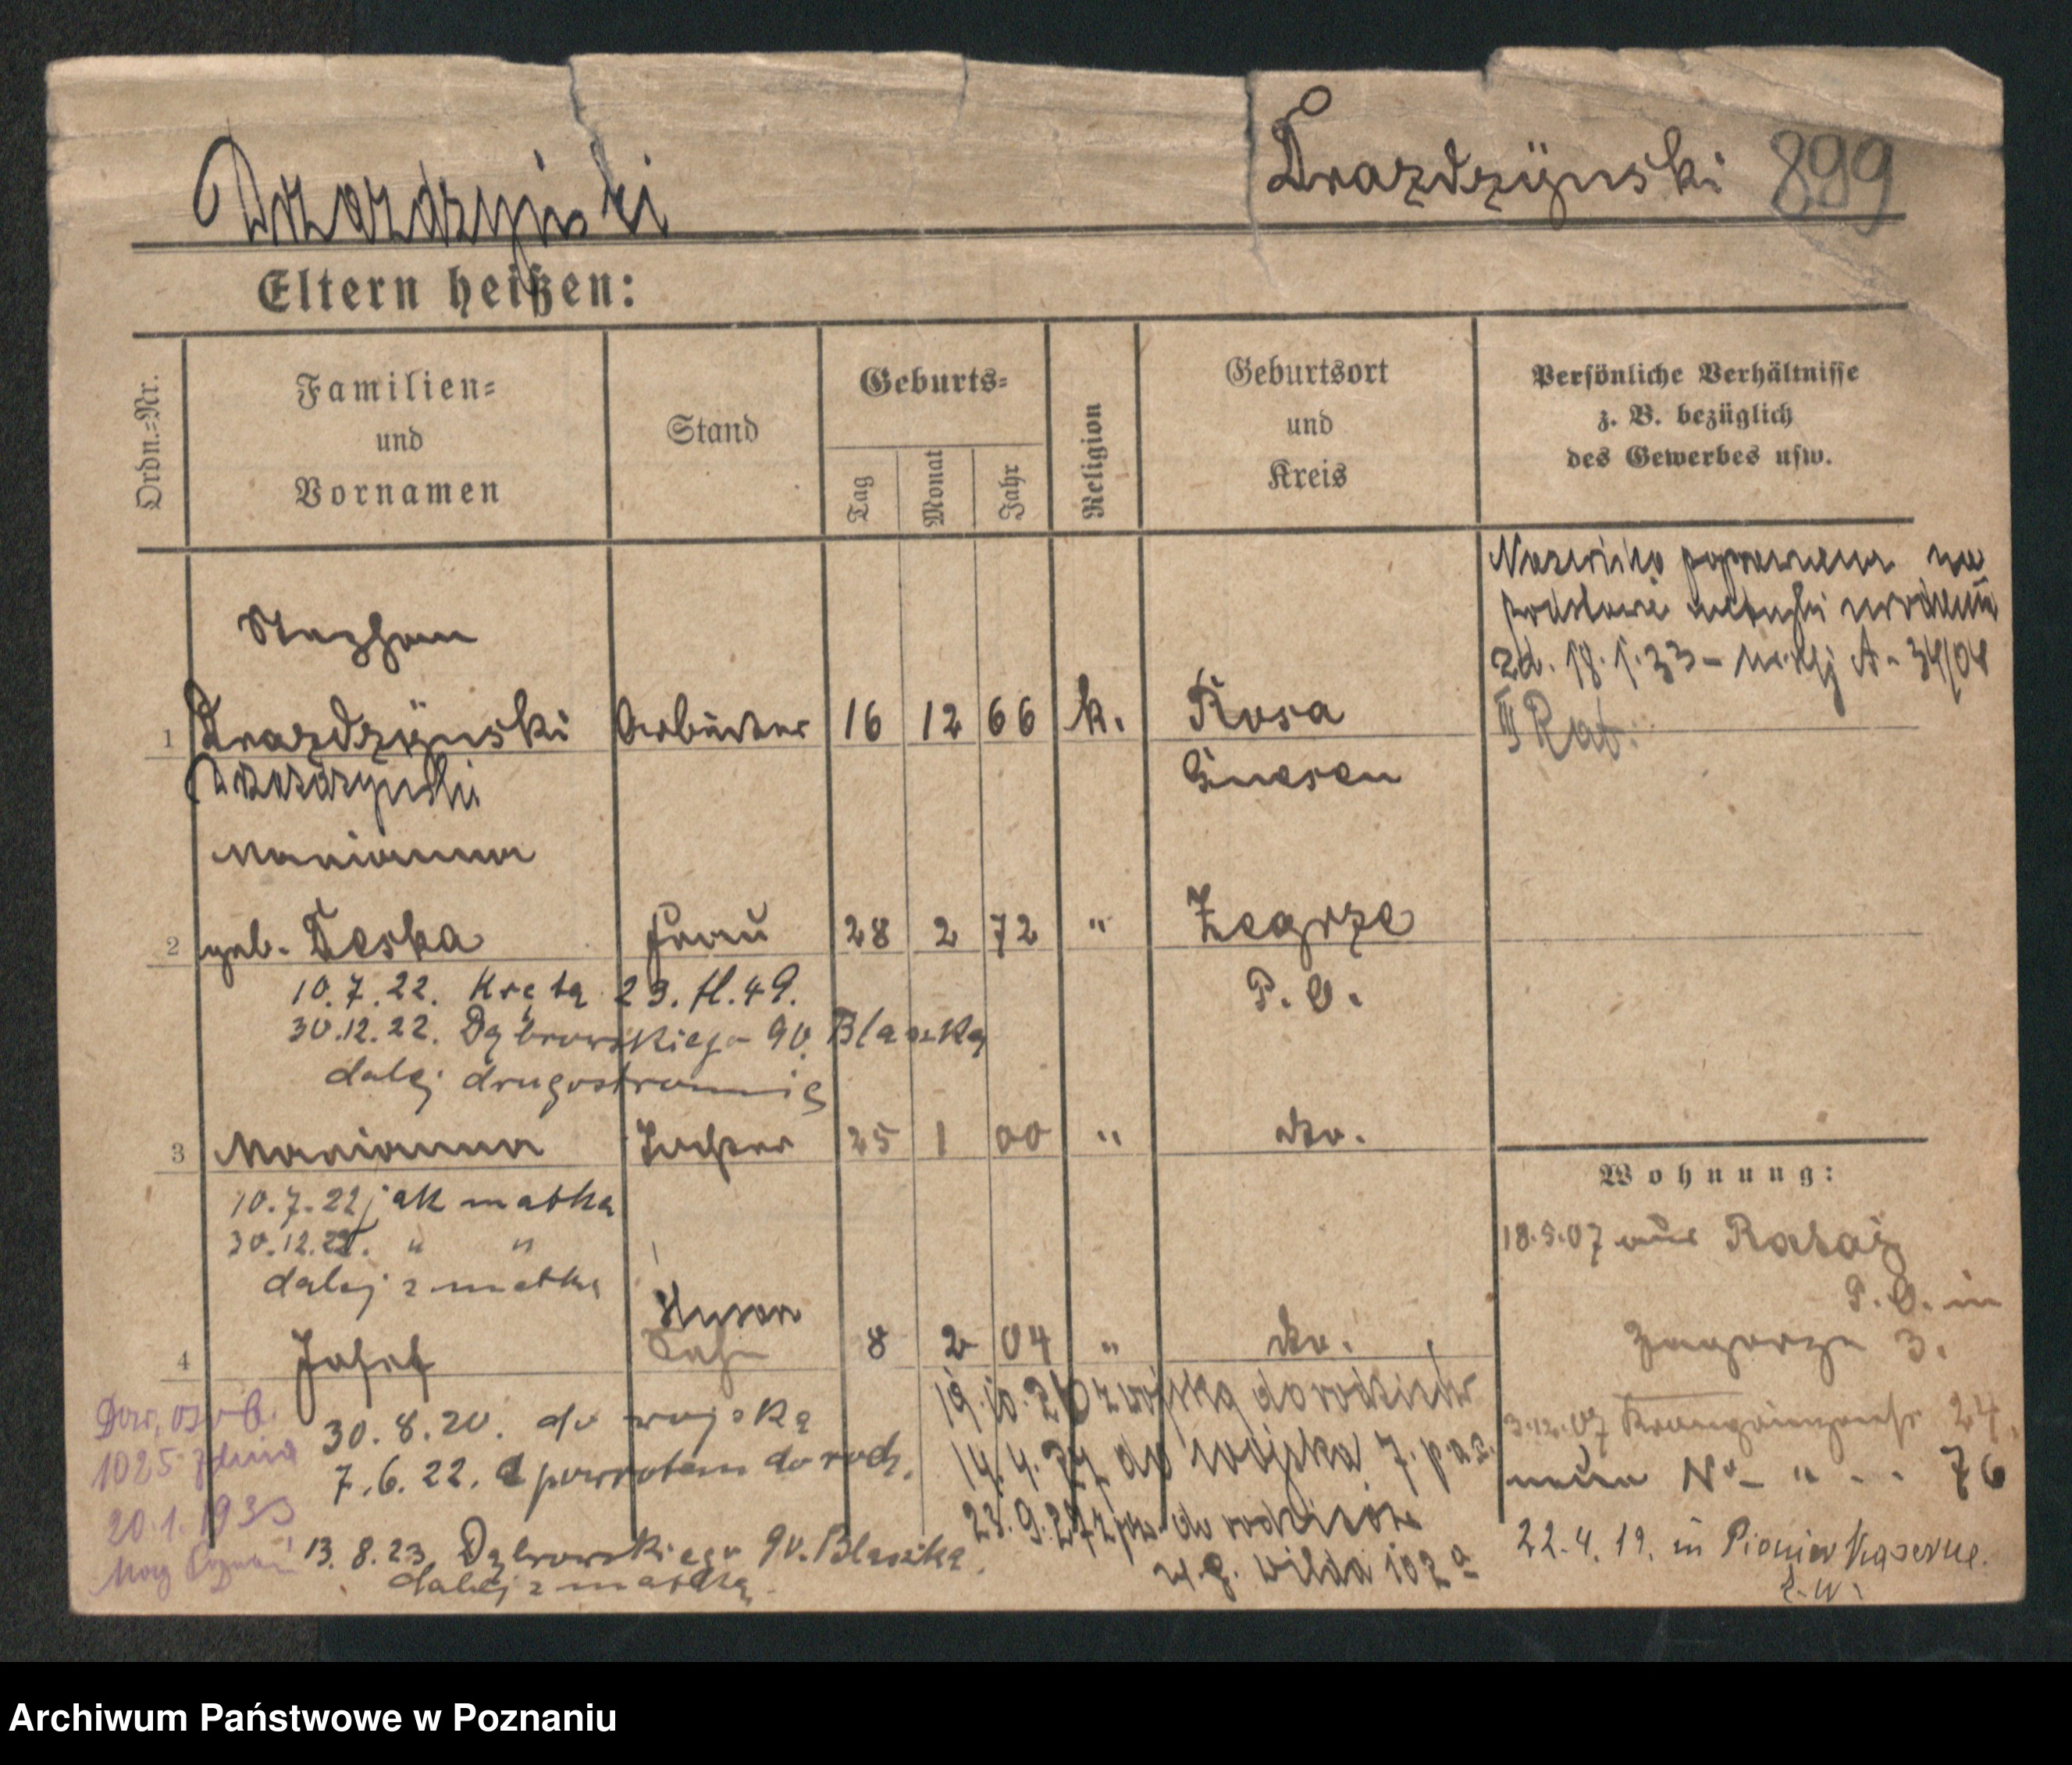 Drazdzynski 899
Eltern heißen:
Ordn.-Nr.
Familien=
und
Vornamen
Stand
Geburts=
Tag
Monat
Jahr
Religion
Geburtsort
und
Kreis
Persönliche Verhältnisse
z. B. bezüglich
des Gewerbes usw.
Nazwisko na
18.1.33 34/04
III Rat.
Stephan
1 Drazdzynski Arbeiter 16 12 66 k. Rosa
Gnesen
Marianna
2 geb. Deska Frau 28 2 72 " Zegrze
P. O.
10.7.22. Kręta 23. fl. 49.
30.12.22. Dąbrowskiego 90. Blaszka
dalej drugostronnie
3 Marianna Tochter 25 1 00 " do.
10.7.22 jak matka
30.12.22. " "
dalej z matką
4 Josef Sohn 8 2 04 " do.
30.8.20. do wojska
7.6.22. z powrotem do rodz.
13.8.23. Dąbrowskiego 90. Blaszka
dalej z matką
19.10.26 z wojska do rodziców
14.4.27 do wojska 7.
23.9.27 do rodziców
Wilda 102a
Dow. osob.
1025 z dnia
20.1.1933
Mag Poznań
Wohnung:
18.5.07 aus Rataj
P. O. in
Zagorze 3.
3.12.07 24.
neue No – " – 76
22.4.19. in Pionier Kaserne.
Archiwum Państwowe w Poznaniu